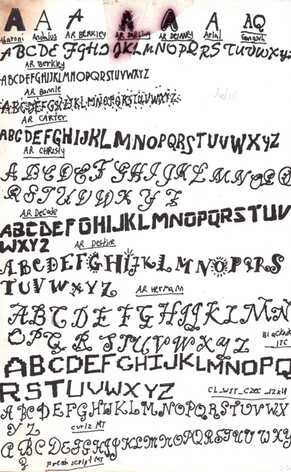 A A A A A A AQ
Aharoni Andalus AR BERKLEY AR DARLING AR DELANEY Arial
ABCDEFGHIJKLMNOPQRSTUVWXYZ
AR Berkley
ABCDEFGHIJKLMNOPQRSTUVWXYZ
AR Bonnie
ABCDEFGHIJKLMNOPQRSTUVWXYZ
AR CARTER
ABCDEFGHIJKLMNOPQRSTUVWXYZ
AR CHRISTY
ABCDEFGHIJKLMNOPQ
RSTUVWXYZ
AR DeCoDe
ABCDEFGHIJKLMNOPQRSTUV
WXYZ
AR Destine
ABCDEFGHIJKLMNOPQRS
TUVWXYZ
AR Hermann
ABCDEFGHIJKLMN
OPQRSTUVWXYZ
Blackadder
ITC
ABCDEFGHIJKLMNOPQ
RSTUVWXYZ
ABCDEFGHIJKLMNOPQRSTUVWX
YZ
Curlz MT
ABCDEFGHIJKLMNOPQRSTUVWXY
Z
French script MT